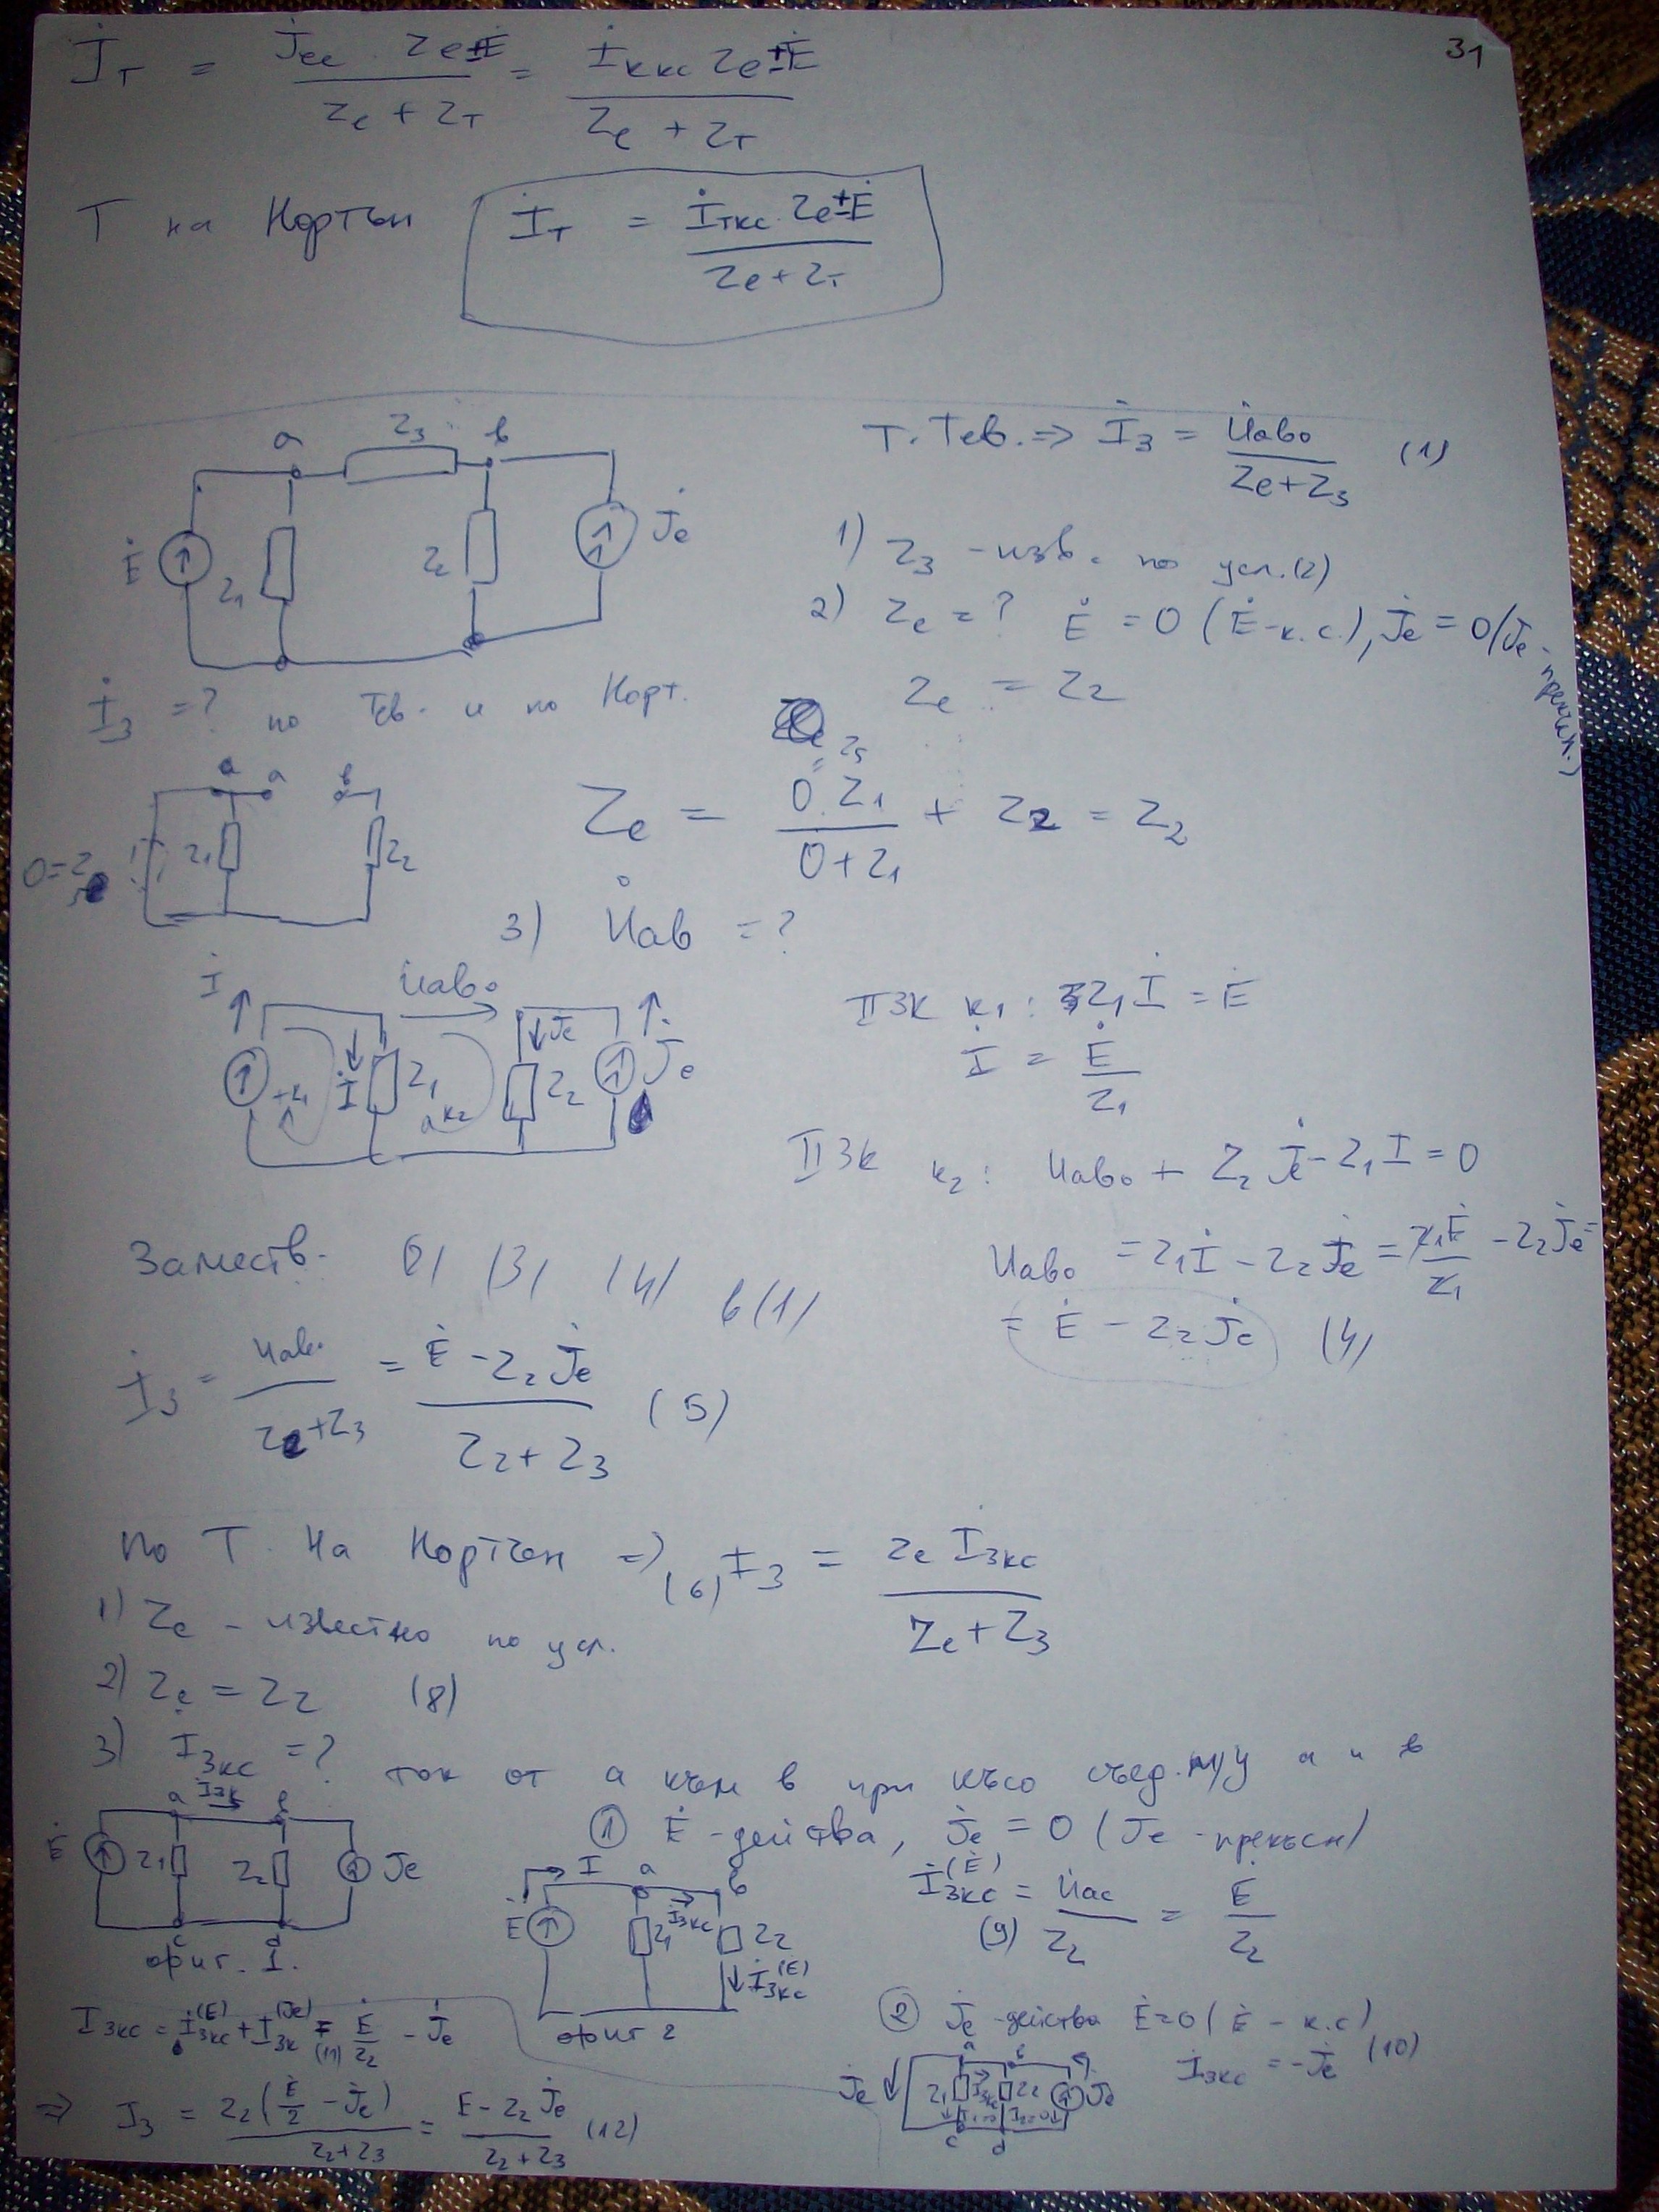 31
J̇т = J̇ee Ze ± Ė / Ze + Zт = İккс Ze ± Ė / Ze + Zт
Т на Нортън İт = İткс Ze ± Ė / Ze + Zт
a Z3 в
Ė Z1 Z2 J̇e
İ3 = ? по Тев. и по Норт.
Т. Тев. => İ3 = U̇аво / Ze+Z3 (1)
1) Z3 - изв. по усл. (2)
2) Ze = ? Ė = 0 (Ė-к.с.), J̇e = 0 (J̇e - прекъсн.)
Ze = Z2
a a в
0=Z Z1 Z2
Ze = 0 . Z1 / 0 + Z1 + Z2 = Z2
3) U̇ав = ?
İ U̇аво J̇e
+к1 İ Z1 к2 Z2 J̇e
II ЗК к1: Z1 İ = Ė
İ = Ė / Z1
II ЗК к2: Uаво + Z2 J̇e - Z1 I = 0
Uаво = Z1 İ - Z2 J̇e = Z1 Ė / Z1 - Z2 J̇e =
= Ė - Z2 J̇e (4)
Заместв. (3) (4) в (1)
İ3 = Uаво / Ze+Z3 = Ė - Z2 J̇e / Z2 + Z3 (5)
По Т. на Нортън => (6) I3 = Ze I3кс / Ze + Z3
1) Ze - известно по усл.
2) Ze = Z2 (8)
3) I3кс = ? ток от а към в при късо съед. м/у а и в
a I3к в
Ė Z1 Z2 Je
c d
фиг. 1.
① Ė - действа, J̇e = 0 (Je - прекъсн)
I a в
Ė Z1 I3кс Z2
İ3кс(E)
фиг 2
İ3кс(Ė) = U̇ас / Z2 = Ė / Z2 (9)
② J̇e - действа Ė=0 (Ė - к.с)
J̇e a в Z1 I3кс Z2 J̇e
c d
İ3кс = -J̇e (10)
I3кс = İ3кс(E) + I3к(Je) = (11) Ė / Z2 - J̇e
=> I3 = Z2 (Ė/2 - J̇e) / Z2+Z3 = E - Z2 J̇e / Z2 + Z3 (12)